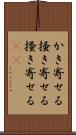 かき寄せる
掻き寄せる
掻き寄せる